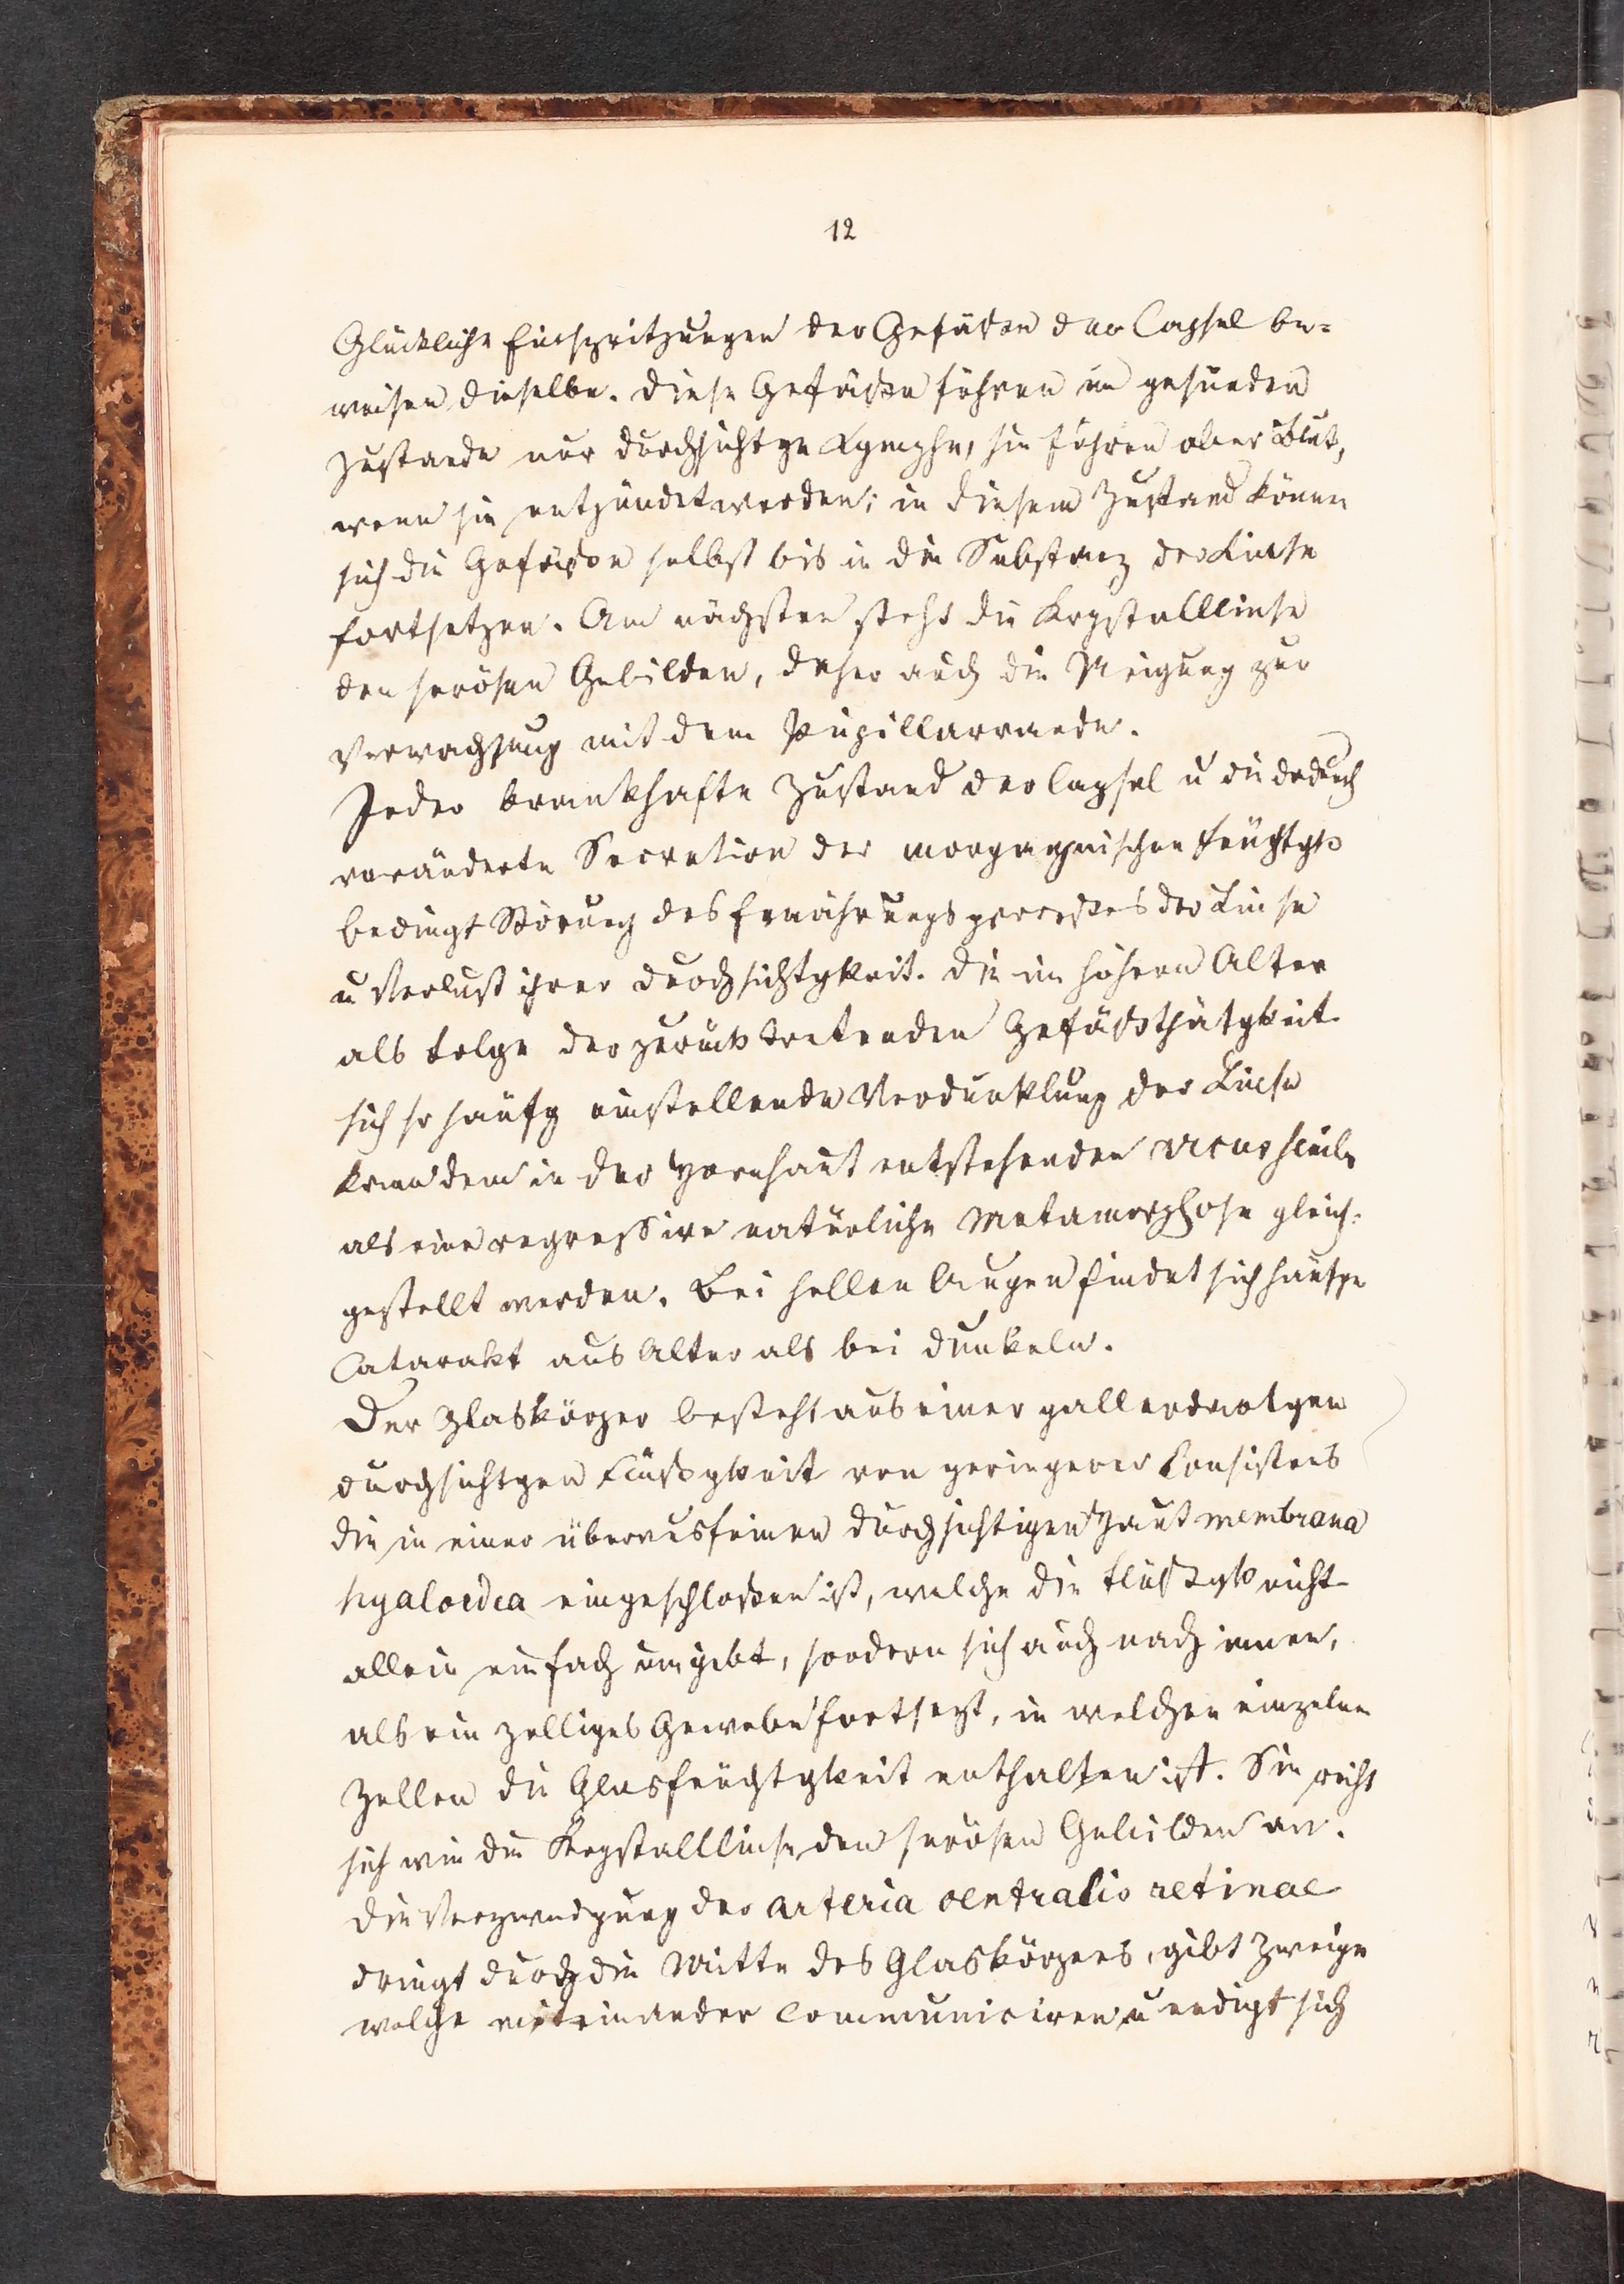 12
Glückliche Einspritzungen der Gefäßen der Capsel be-
weisen dieselbe. Diese Gefäßen führen im gesunden
Zustande nur durchsichtge Lymphe, sie führen aber Blut,
wenn sie entzündet werden; in diesem Zustand können
sich die Gefäßen selbst bis in die Substanz der Linse
fortsetzen. Am nächsten steht die Krystalllinse
den serösen Gebilden, daher auch die Neigung zur
Verwachsung mit dem Pupillarrande.
Jeder krankhafte Zustand der Capsel u die dadurch
veränderte Secretion der morgagnischen Feuchtgk
bedingt Störung des Ernährungsprocesses der Linse
u Verlust ihrer Durchsichtgkeit. Die im höhern Alter
als Folge der zurücktretenden Gefäßthätgkeit
sich so häufg einstellende Verdunklung der Linse
kann dem in der Hornhaut entstehenden arcus senilis
als eine regressive natürliche Metamorphose gleich-
gestellt werden. Bei hellen Augen findet sich häufger
Catarakt aus Alter als bei dunkeln.
Der Glaskörper besteht aus einer gallerdartgen
durchsichtgen Flüßgkeit von geringerer Consistens
die in einer überausfeinen durchsichtigen Haut membrana
hyaloidea eingeschloßen ist, welche die Flüßgk nicht
allein einfach umgibt, sondern sich auch nach innen,
als ein zelliges Gewebe fortsezt, in welchen einzelnen
Zellen die Glasfeuchtgkeit enthalten ist. Sie reiht
sich wie die Krystalllinse den serösen Gebilden an.
Die Verzweigung der arteria centralis retinae
dringt durch die Mitte des Glaskörpers, gibt Zweige
welche miteinander communiciren u endigt sich